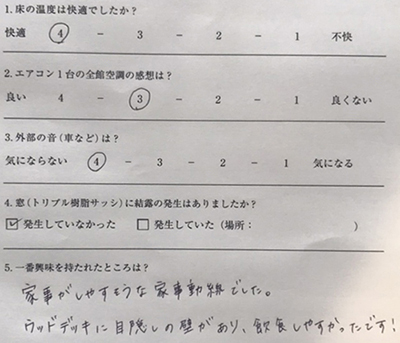 1. 床の温度は快適でしたか？
快適 4 － 3 － 2 － 1 不快
2. エアコン1台の全館空調の感想は？
良い 4 － 3 － 2 － 1 良くない
3. 外部の音（車など）は？
気にならない 4 － 3 － 2 － 1 気になる
4. 窓（トリプル樹脂サッシ）に結露の発生はありましたか？
☑発生していなかった □発生していた（場所： ）
5. 一番興味を持たれたところは？
家事がしやすそうな家事動線でした。
ウッドデッキに目隠しの壁があり、飲食しやすかったです！